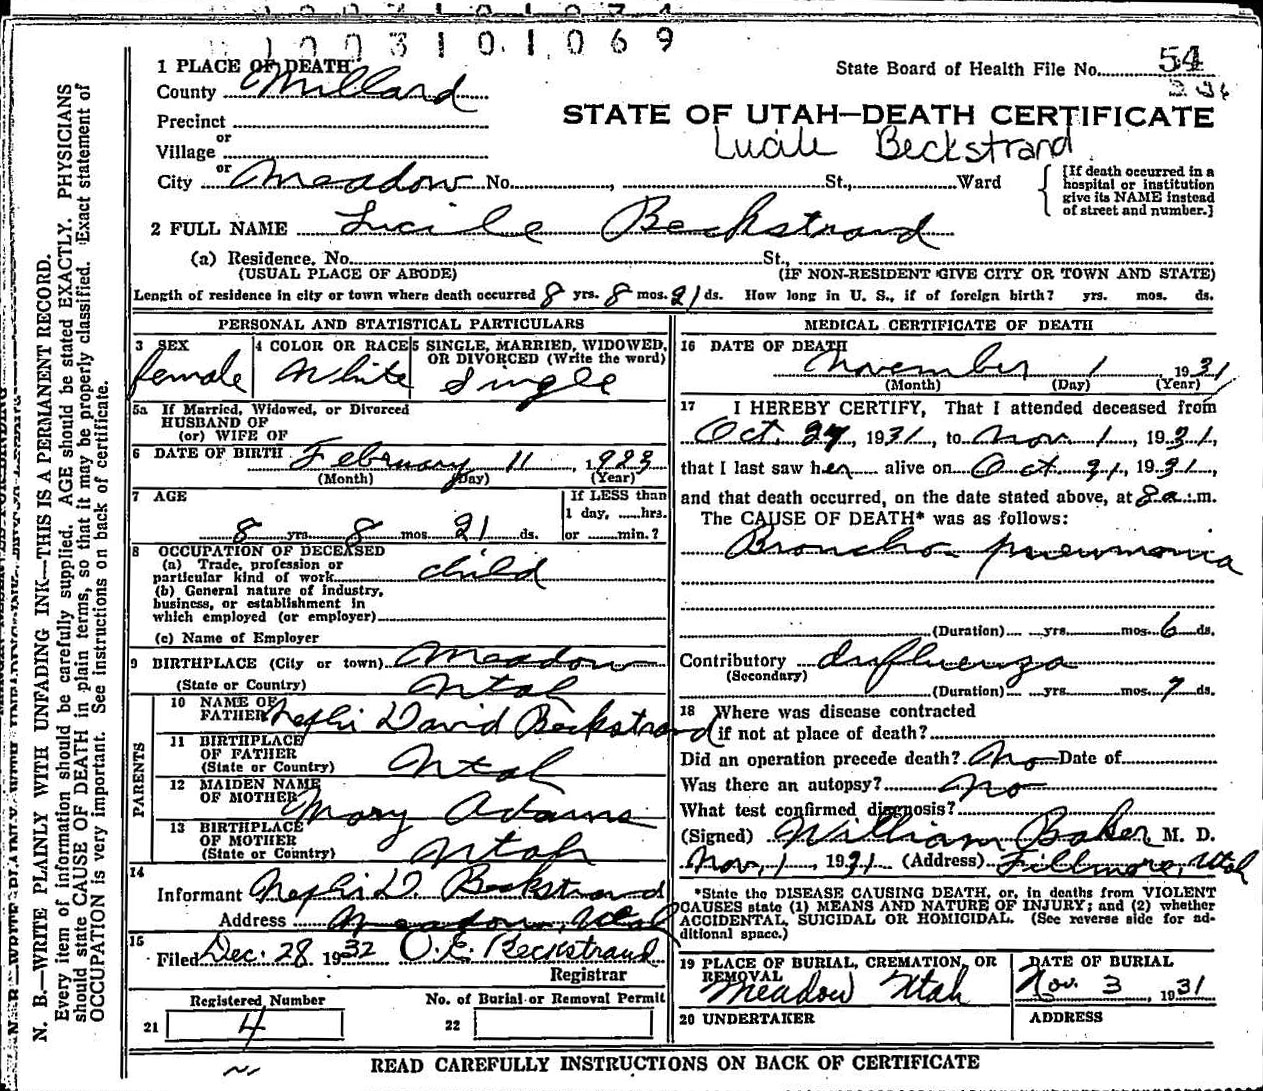 1003101069
1 PLACE OF DEATH
County Millard
State Board of Health File No. 54
Precinct
or
Village
STATE OF UTAH—DEATH CERTIFICATE
Lucile Beckstrand
or
City Meadow No. , St., Ward
[If death occurred in a
hospital or institution
give its NAME instead
of street and number.]
2 FULL NAME Lucile Beckstrand
(a) Residence, No. St.,
(USUAL PLACE OF ABODE) (IF NON-RESIDENT GIVE CITY OR TOWN AND STATE)
Length of residence in city or town where death occurred 8 yrs. 8 mos. 21 ds. How long in U. S., if of foreign birth? yrs. mos. ds.
PERSONAL AND STATISTICAL PARTICULARS
3 SEX
female
4 COLOR OR RACE
White
5 SINGLE, MARRIED, WIDOWED,
OR DIVORCED (Write the word)
Single
5a If Married, Widowed, or Divorced
HUSBAND OF
(or) WIFE OF
6 DATE OF BIRTH February 11, 1923
(Month) (Day) (Year)
7 AGE
8 yrs. 8 mos. 21 ds.
If LESS than
1 day, hrs.
or min.?
8 OCCUPATION OF DECEASED
(a) Trade, profession or
particular kind of work child
(b) General nature of industry,
business, or establishment in
which employed (or employer)
(c) Name of Employer
9 BIRTHPLACE (City or town) Meadow
(State or Country) Utah
PARENTS
10 NAME OF
FATHER Nephi David Beckstrand
11 BIRTHPLACE
OF FATHER
(State or Country) Utah
12 MAIDEN NAME
OF MOTHER Mary Adams
13 BIRTHPLACE
OF MOTHER
(State or Country) Utah
14
Informant Nephi D. Beckstrand
Address Meadow, Utah
15
Filed Dec. 28 1932 O. E. Beckstrand
Registrar
Registered Number
21 4
No. of Burial or Removal Permit
22
MEDICAL CERTIFICATE OF DEATH
16 DATE OF DEATH
November 1 1931
(Month) (Day) (Year)
17 I HEREBY CERTIFY, That I attended deceased from
Oct. 27, 1931, to Nov. 1, 1931,
that I last saw her alive on Oct 31, 1931,
and that death occurred, on the date stated above, at 8 a.m.
The CAUSE OF DEATH* was as follows:
Broncho pneumonia
(Duration) yrs. mos. 6 ds.
Contributory Influenza
(Secondary)
(Duration) yrs. mos. 7 ds.
18 Where was disease contracted
if not at place of death?
Did an operation precede death? No Date of
Was there an autopsy? No
What test confirmed diagnosis?
(Signed) William Baker, M. D.
Nov. 1, 1931 (Address) Fillmore, Utah
*State the DISEASE CAUSING DEATH, or, in deaths from VIOLENT
CAUSES state (1) MEANS AND NATURE OF INJURY; and (2) whether
ACCIDENTAL, SUICIDAL OR HOMICIDAL. (See reverse side for ad-
ditional space.)
19 PLACE OF BURIAL, CREMATION, OR
REMOVAL
Meadow Utah
DATE OF BURIAL
Nov. 3, 1931
20 UNDERTAKER
ADDRESS
READ CAREFULLY INSTRUCTIONS ON BACK OF CERTIFICATE
N. B.—WRITE PLAINLY WITH UNFADING INK—THIS IS A PERMANENT RECORD.
Every item of information should be carefully supplied. AGE should be stated EXACTLY. PHYSICIANS
should state CAUSE OF DEATH in plain terms, so that it may be properly classified. Exact statement of
OCCUPATION is very important. See instructions on back of certificate.